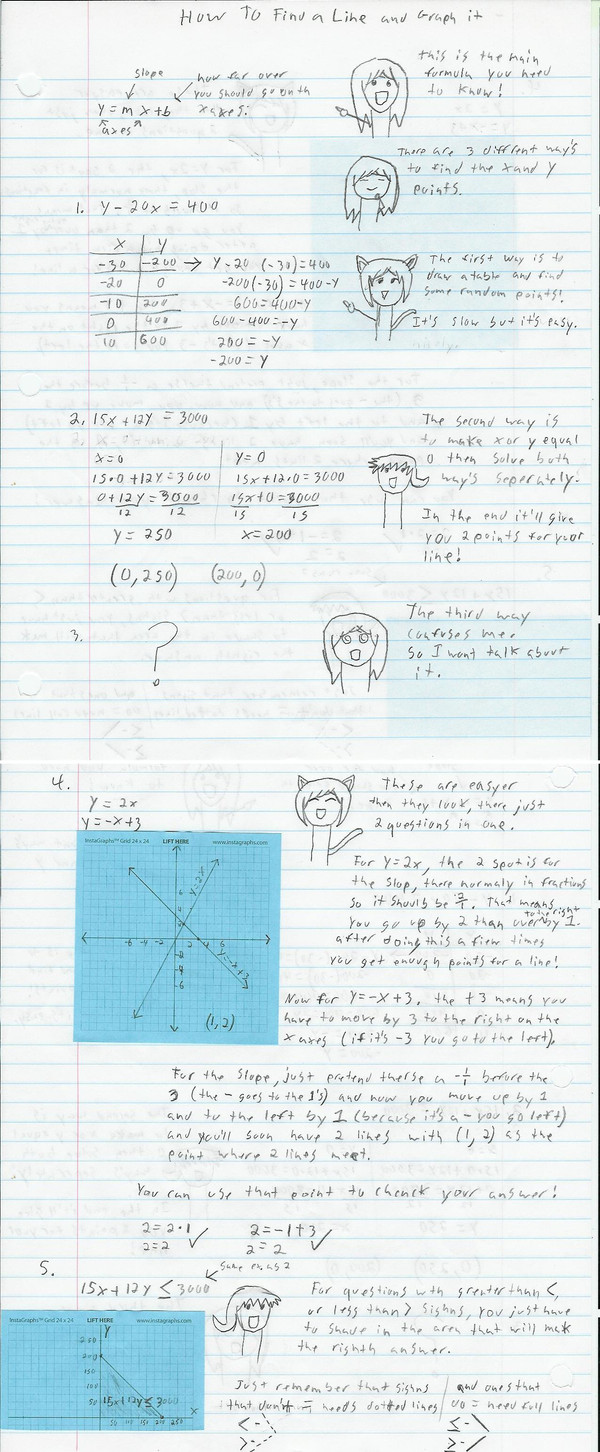 How To Find a Line and Graph it
this is the main
formula you need
to know!
slope
how far over
you should go onth
x axes.
y = m x + b
axes
There are 3 diffrent way's
to find the x and y
points.
1. y - 20x = 400
x y
-30 -200 → y - 20 (-30) = 400
-20 0 -200(-30) = 400 - y
-10 200 -600 = 400 - y
0 400 600 - 400 = -y
10 600 200 = -y
-200 = y
The first way is to
draw a table and find
some random points!
It's slow but it's easy.
2. 15x + 12y = 3000
x = 0 y = 0
15•0 + 12y = 3000 15x + 12•0 = 3000
0 + 12y = 3000 15x + 0 = 3000
12 12 15 15
y = 250 x = 200
(0, 250) (200, 0)
The second way is
to make x or y equal
0 then solve both
way's seperately.
In the end it'll give
you 2 points for your
line!
3. ?
The third way
confuses me.
So I wont talk about
it.
4.
y = 2x
y = -x + 3
These are easyer
then they look, there just
2 questions in one.
InstaGraphs™ Grid 24 x 24 LIFT HERE www.instagraphs.com
y = 2x
y = -x + 3
-6 -4 -2 2 4 6
6
-2
-4
-6
(1, 2)
For y = 2x, the 2 spot is for
the slop, there normaly in fractions
so it should be 2/1. That means
you go up by 2 than over to the right by 1.
after doing this a fiew times
you get enough points for a line!
Now for y = -x + 3. the + 3 means you
have to move by 3 to the right on the
x axes (if it's -3 you go to the left).
For the slope, just pretend therse a -1/1 before the
3 (the - goes to the 1's) and now you move up by 1
and to the left by 1 (because it's a - you go left)
and you'll soon have 2 lines with (1, 2) as the
point where 2 lines meet.
You can use that point to chenck your answer!
2 = 2•1 ✓ 2 = -1 + 3 ✓
2 = 2 2 = 2
5.
same ex as 2
15x + 12y ≤ 3000
For questions wth greater than <,
or less than > sighns, you just have
to shade in the area that will mak
the righth answer.
InstaGraphs™ Grid 24 x 24 LIFT HERE www.instagraphs.com
y
250
200
150
100
50
15x + 12y ≤ 3000
50 100 150 200 250
x
Just remember that sighns
that don't = needs dotted lines
< -
> -
and ones that
do = need full lines
≤ -
≥ -